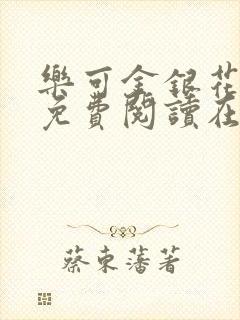 樂可金銀花
免費閱讀在
蔡東藩著